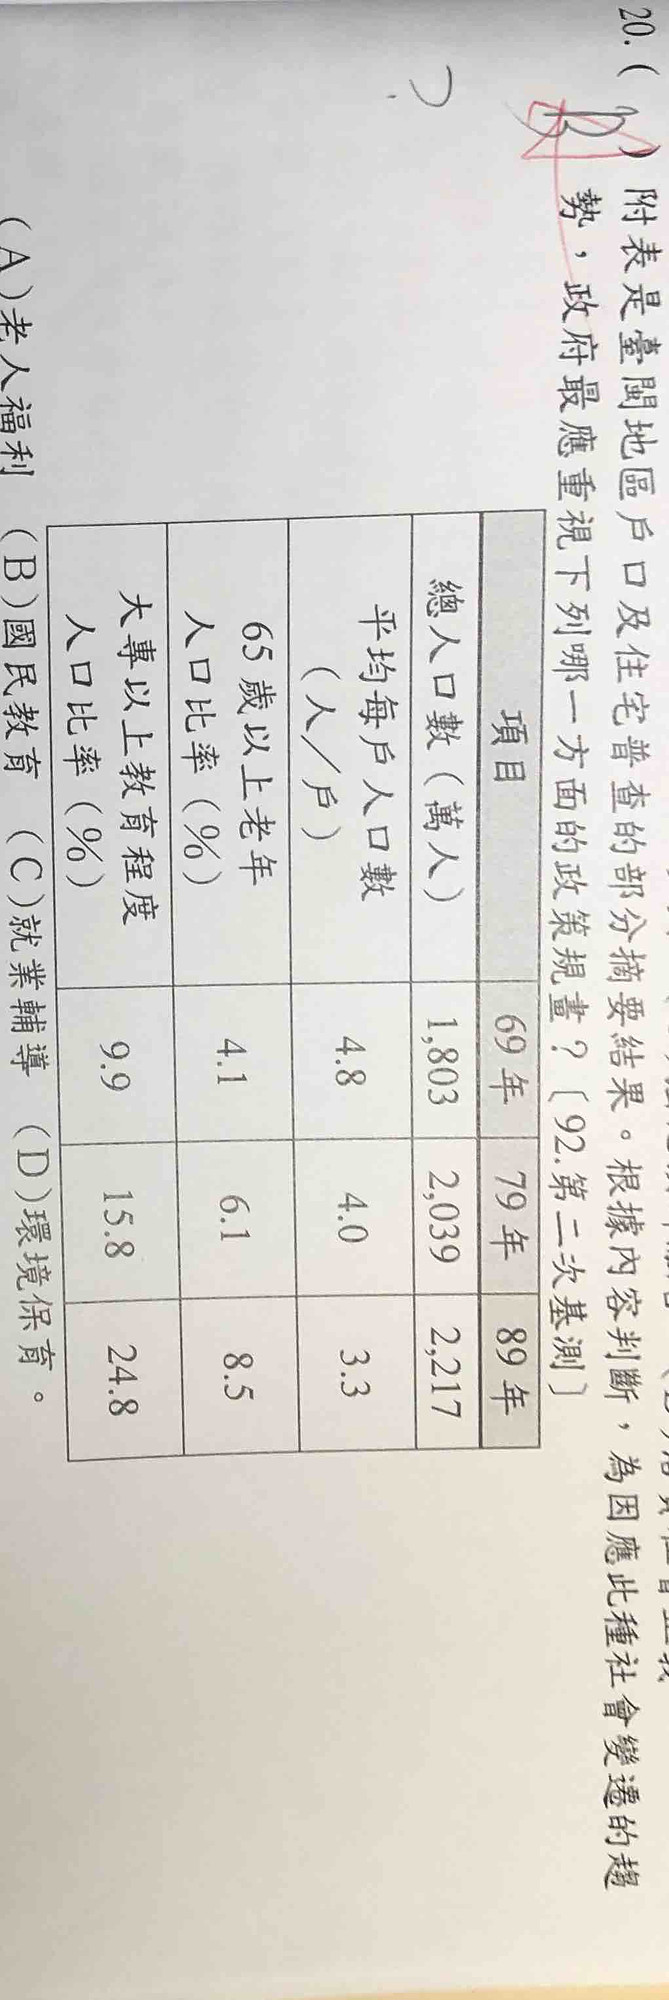 20.( B ) 附表是臺閩地區戶口及住宅普查的部分摘要結果。根據內容判斷，為因應此種社會變遷的趨
勢，政府最應重視下列哪一方面的政策規畫？〔92.第二次基測〕
項目 69年 79年 89年
總人口數（萬人） 1,803 2,039 2,217
平均每戶人口數
（人／戶） 4.8 4.0 3.3
65歲以上老年
人口比率（%） 4.1 6.1 8.5
大專以上教育程度
人口比率（%） 9.9 15.8 24.8
(A)老人福利 (B)國民教育 (C)就業輔導 (D)環境保育。